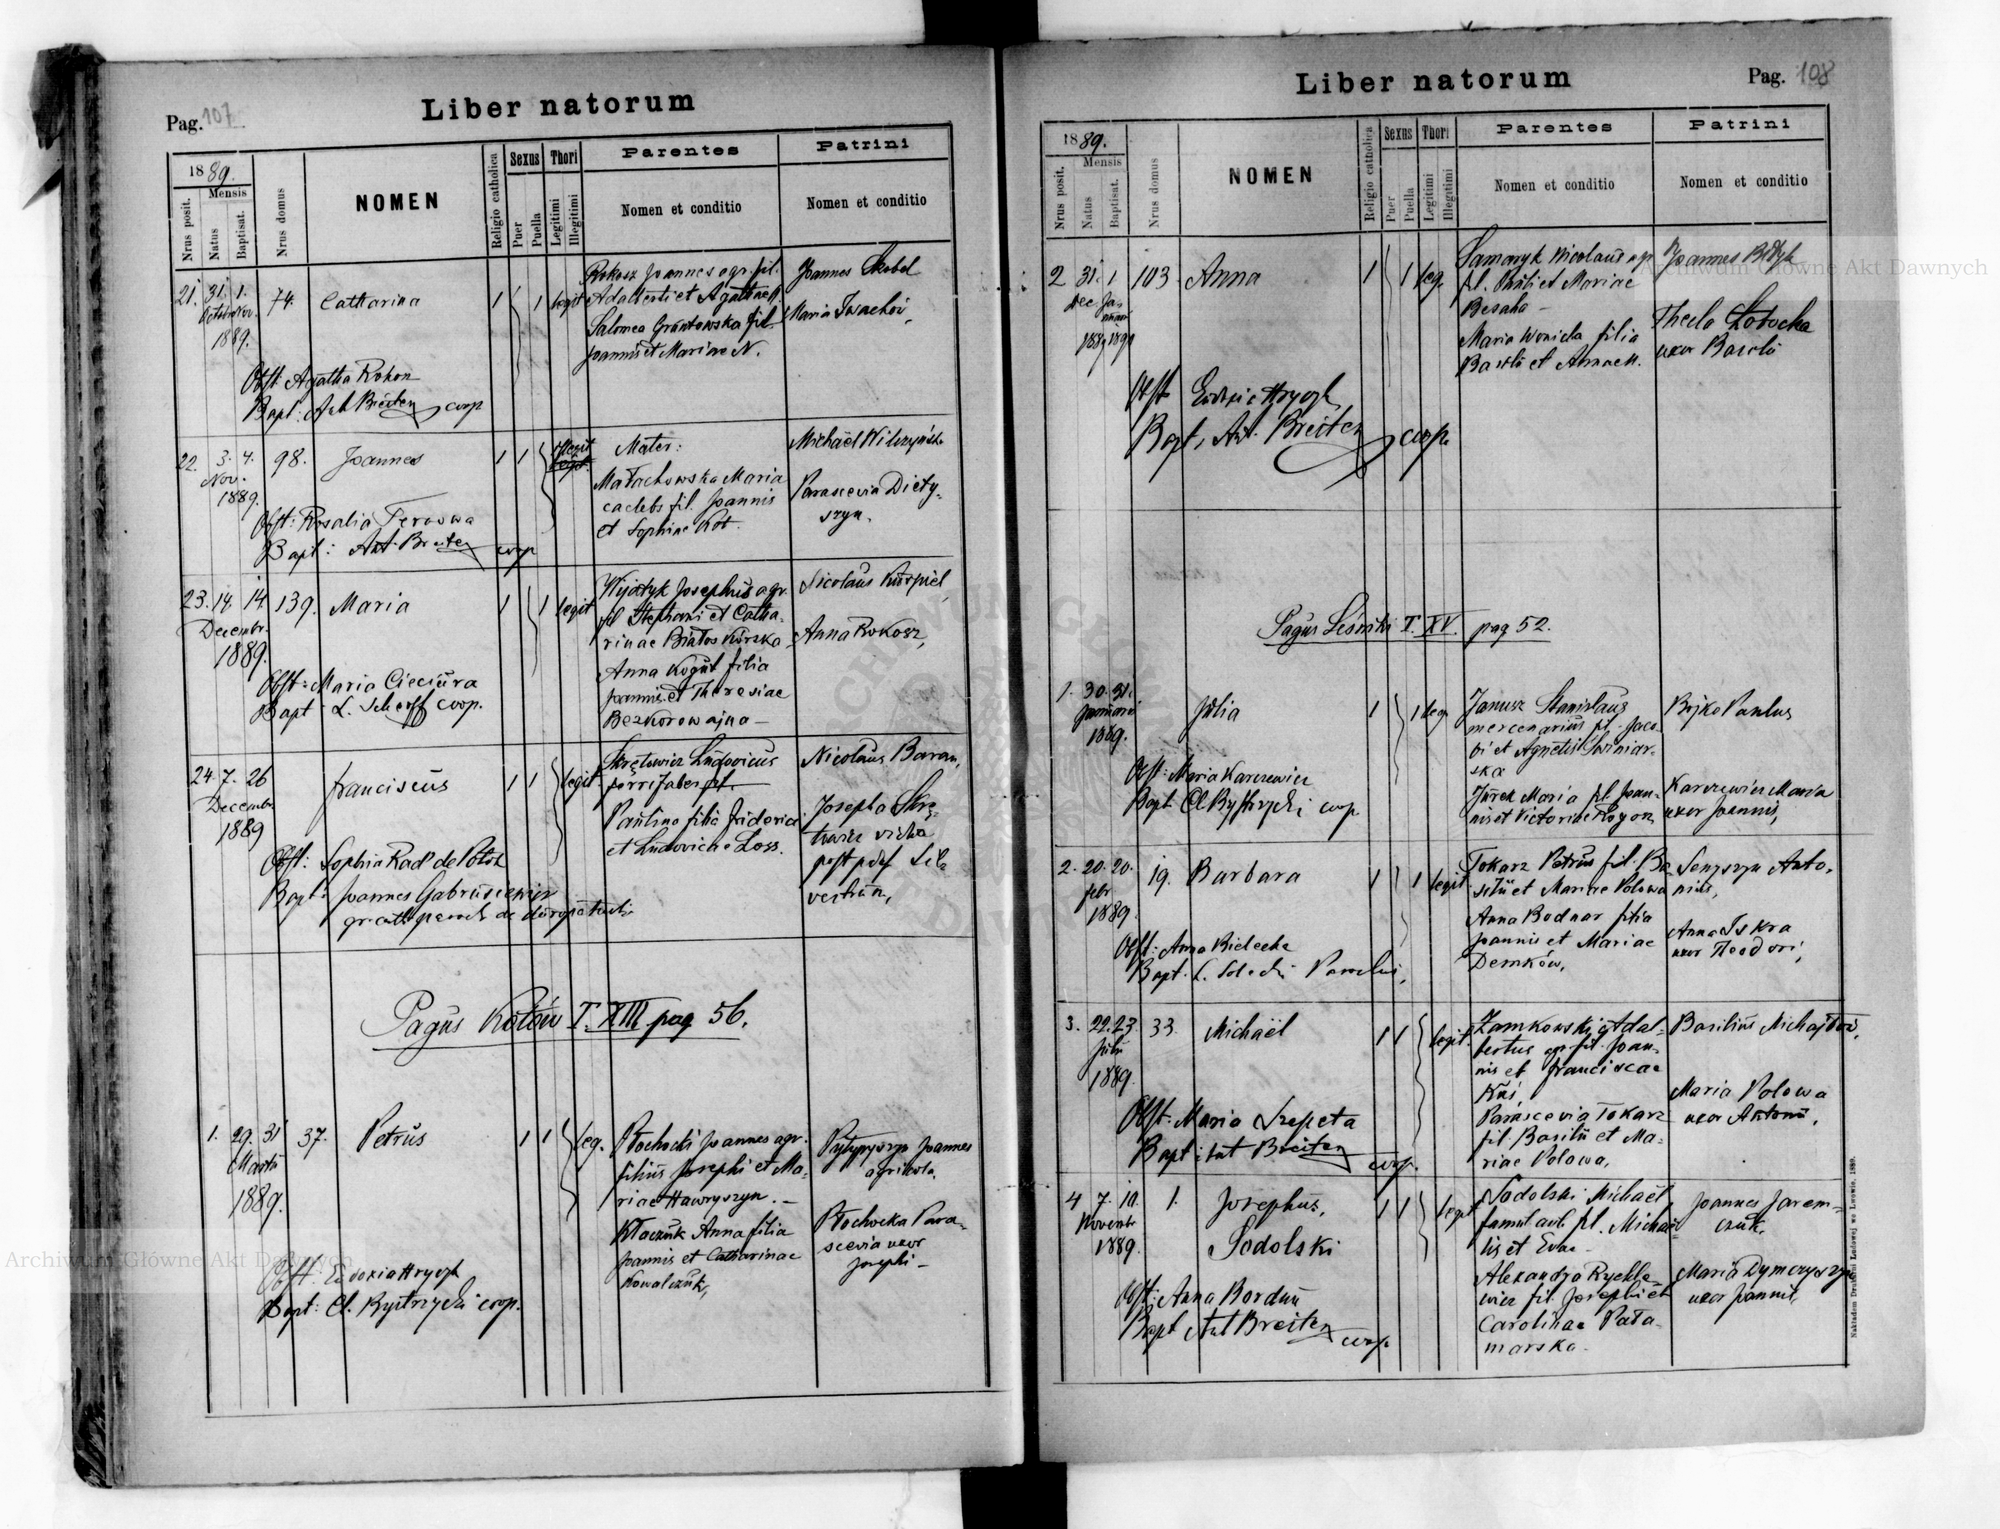 Pag. 107
Liber natorum
1889.
Nrus posit.
Mensis
Natus
Baptisat.
Nrus domus
NOMEN
Religio catholica
Sexus
Puer
Puella
Thori
Legitimi
Illegitimi
Parentes
Nomen et conditio
Patrini
Nomen et conditio
21. 31. 1. 74. Catharina 1 1 legit
1889.
Rokosz Joannes agr. fil.
Adalberti et Agathae
Salomea fil.
Joannis et Mariae N.
Joannes
Maria Iwachów,
Obst: Agatha Rokosz
Bapt: Ant Breiten coop
22. 3. 4. 98. Joannes 1 1 illegit
Nov.
1889.
Mater:
Małachowska Maria
caelebs fil. Joannis
et Sophiae Kot.
Michaël
Parascevia Diety-
szyn.
Obst: Rosalia
Bapt: Ant. Breiten coop
23. 14. 14. 139. Maria 1 1 legit
Decembr.
1889.
Josephus agr.
fil Stephani et Catha-
rinae
Anna Kogut filia
Joannis et Theresiae
Bezkorowajna
Nicolaus Kuspiel,
Anna Rokosz,
Obst: Maria Cieciura
Bapt L. Scherff coop.
24. 7. 26 Franciscus 1 1 legit.
Decembr
1889
Ludovicus
ferrifaber fil.
Paulina filia Friderici
et Ludovicae Loss.
Nicolaus Baran,
Josepha Skrę-
towicz vidua
post
Obst: Sophia
Bapt: Joannes
Pagus Kotów T. XIII pag 56.
1. 29. 31 37. Petrus 1 1 leg.
Martii
1889.
Płochocki Joannes agr.
filius Josephi et Ma-
riae Hawryszyn.
Kłaczuk Anna filia
Joannis et Catharinae
Kowalczuk,
Joannes
agricola.
Płochocka Para-
scevia uxor
Josephi
Obst: Eudoxia Hrycyk
Bapt: Cl. Bystrzycki coop.
Liber natorum
Pag. 108
1889.
Nrus posit.
Mensis
Natus
Baptisat.
Nrus domus
NOMEN
Religio catholica
Sexus
Puer
Puella
Thori
Legitimi
Illegitimi
Parentes
Nomen et conditio
Patrini
Nomen et conditio
2 31. 1 103. Anna 1 1 leg.
Dec.
Samaryk Nicolaus agr
fil. Pauli et Mariae
Besaha
Maria filia
Basilii et Annae
Joannes
Thecla
uxor Basilii
Obst Hrycyk
Bapt. Ant. Breiten coop.
Pagus Leśniki T. XV. pag 52.
1. 30. 31. Julia 1 1 leg
Januarii
1889.
Janusz Stanislaus
mercenarius fil. Jaco-
bi et Agnetis Świniar-
ska
Jurek Maria fil. Joan-
nis et Victoriae Rogon
Bojko Paulus
Karczewicz Maria
uxor Joannis,
Obst: Maria Karczewicz
Bapt. Cl Bystrzycki coop.
2. 20. 20. 19. Barbara 1 1 legit
febr
1889.
Tokarz Petrus fil. Ba-
silii et Mariae Polowa
Anna Bodnar filia
Joannis et Mariae
Demków.
Senyszyn Anto-
nius,
Anna Iskra
uxor Theodori,
Obst: Anna Bielecka
Bapt. L. Solecki Parochus,
3. 22. 23. 33. Michaël 1 1 legit.
Julii
1889.
Zamkowski Adal-
bertus agr fil. Joan-
nis et Franciscae
Kuś,
Parascevia Tokarz
fil. Basilii et Ma-
riae Polowa.
Basilius Michajłów,
Maria Polowa
uxor Antonii.
Obst: Maria Szepeta
Bapt: Ant Breiten coop.
4 7. 10. 1. Josephus, 1 1 legit
Novembr
1889.
Sodolski
Sodolski Michaël
famul aul. fil. Michaë-
lis et Evae
Alexandra Rychle-
wicz fil. Josephi et
Carolinae Pała-
marska
Joannes Jarem-
czuk,
Maria Dymczyszyn
uxor Joannis,
Obst: Anna Bordun
Bapt Ant Breiten coop.
Nakładem Drukarni Ludowej we Lwowie. 1889.
Archiwum Główne Akt Dawnych
Archiwum Główne Akt Dawnych